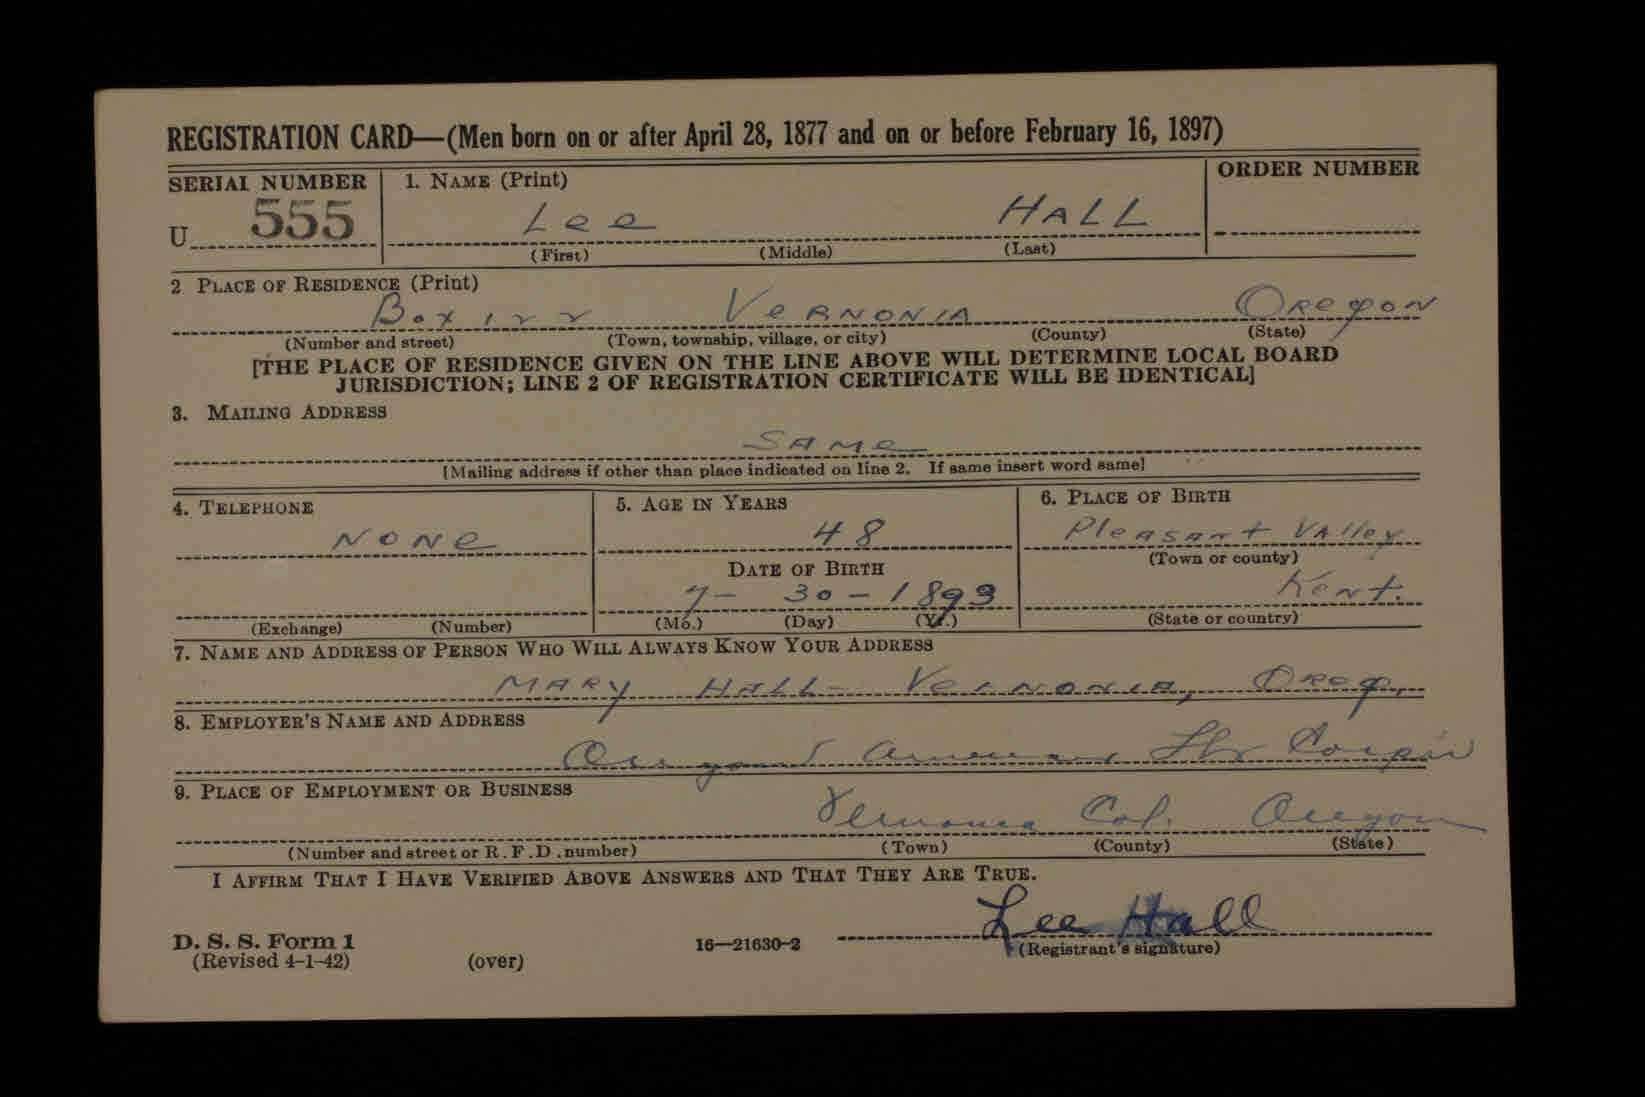 REGISTRATION CARD—(Men born on or after April 28, 1877 and on or before February 16, 1897)
SERIAL NUMBER 1. NAME (Print) ORDER NUMBER
U 555 Lee HALL
(First) (Middle) (Last)
2 PLACE OF RESIDENCE (Print)
Box 122 VeRNONIA ORegON
(Number and street) (Town, township, village, or city) (County) (State)
[THE PLACE OF RESIDENCE GIVEN ON THE LINE ABOVE WILL DETERMINE LOCAL BOARD
JURISDICTION; LINE 2 OF REGISTRATION CERTIFICATE WILL BE IDENTICAL]
3. MAILING ADDRESS
SAMe
[Mailing address if other than place indicated on line 2. If same insert word same]
4. TELEPHONE 5. AGE IN YEARS 6. PLACE OF BIRTH
NONe 48 PleASANt VAlley
(Town or county)
DATE OF BIRTH
7- 30-1893 Kent.
(Exchange) (Number) (Mo.) (Day) (Yr.) (State or country)
7. NAME AND ADDRESS OF PERSON WHO WILL ALWAYS KNOW YOUR ADDRESS
MARY HALL- VeRNONIA, OReg.
8. EMPLOYER'S NAME AND ADDRESS
Oregon American
9. PLACE OF EMPLOYMENT OR BUSINESS
Vernonia Col. Oregon
(Number and street or R. F. D. number) (Town) (County) (State)
I AFFIRM THAT I HAVE VERIFIED ABOVE ANSWERS AND THAT THEY ARE TRUE.
Lee Hall
D. S. S. Form 1 16—21630-2 (Registrant's signature)
(Revised 4-1-42) (over)